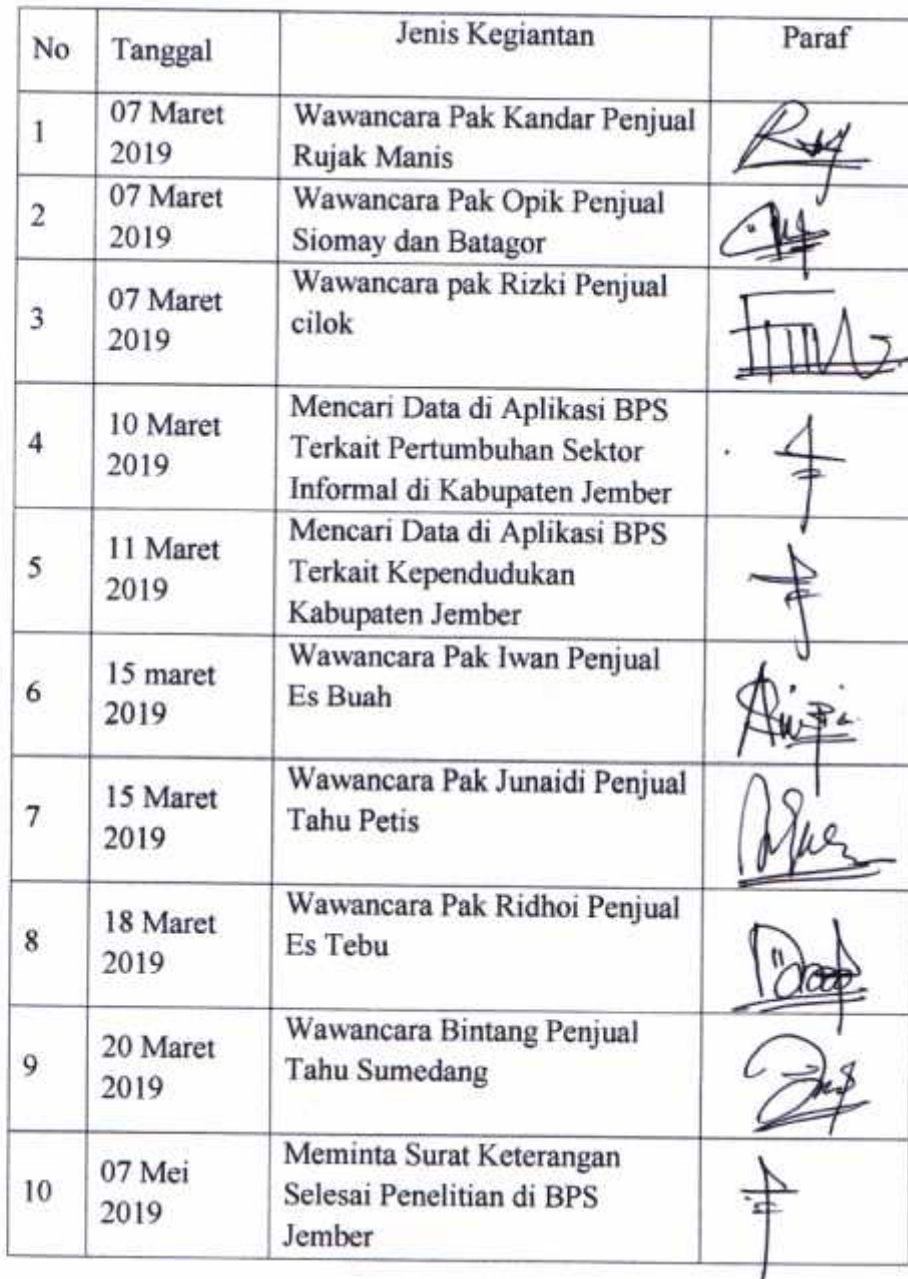 No Tanggal Jenis Kegiantan Paraf
1 07 Maret 2019 Wawancara Pak Kandar Penjual
Rujak Manis
2 07 Maret 2019 Wawancara Pak Opik Penjual
Siomay dan Batagor
3 07 Maret 2019 Wawancara pak Rizki Penjual
cilok
4 10 Maret 2019 Mencari Data di Aplikasi BPS
Terkait Pertumbuhan Sektor
Informal di Kabupaten Jember
5 11 Maret 2019 Mencari Data di Aplikasi BPS
Terkait Kependudukan
Kabupaten Jember
6 15 maret 2019 Wawancara Pak Iwan Penjual
Es Buah
7 15 Maret 2019 Wawancara Pak Junaidi Penjual
Tahu Petis
8 18 Maret 2019 Wawancara Pak Ridhoi Penjual
Es Tebu
9 20 Maret 2019 Wawancara Bintang Penjual
Tahu Sumedang
10 07 Mei 2019 Meminta Surat Keterangan
Selesai Penelitian di BPS
Jember